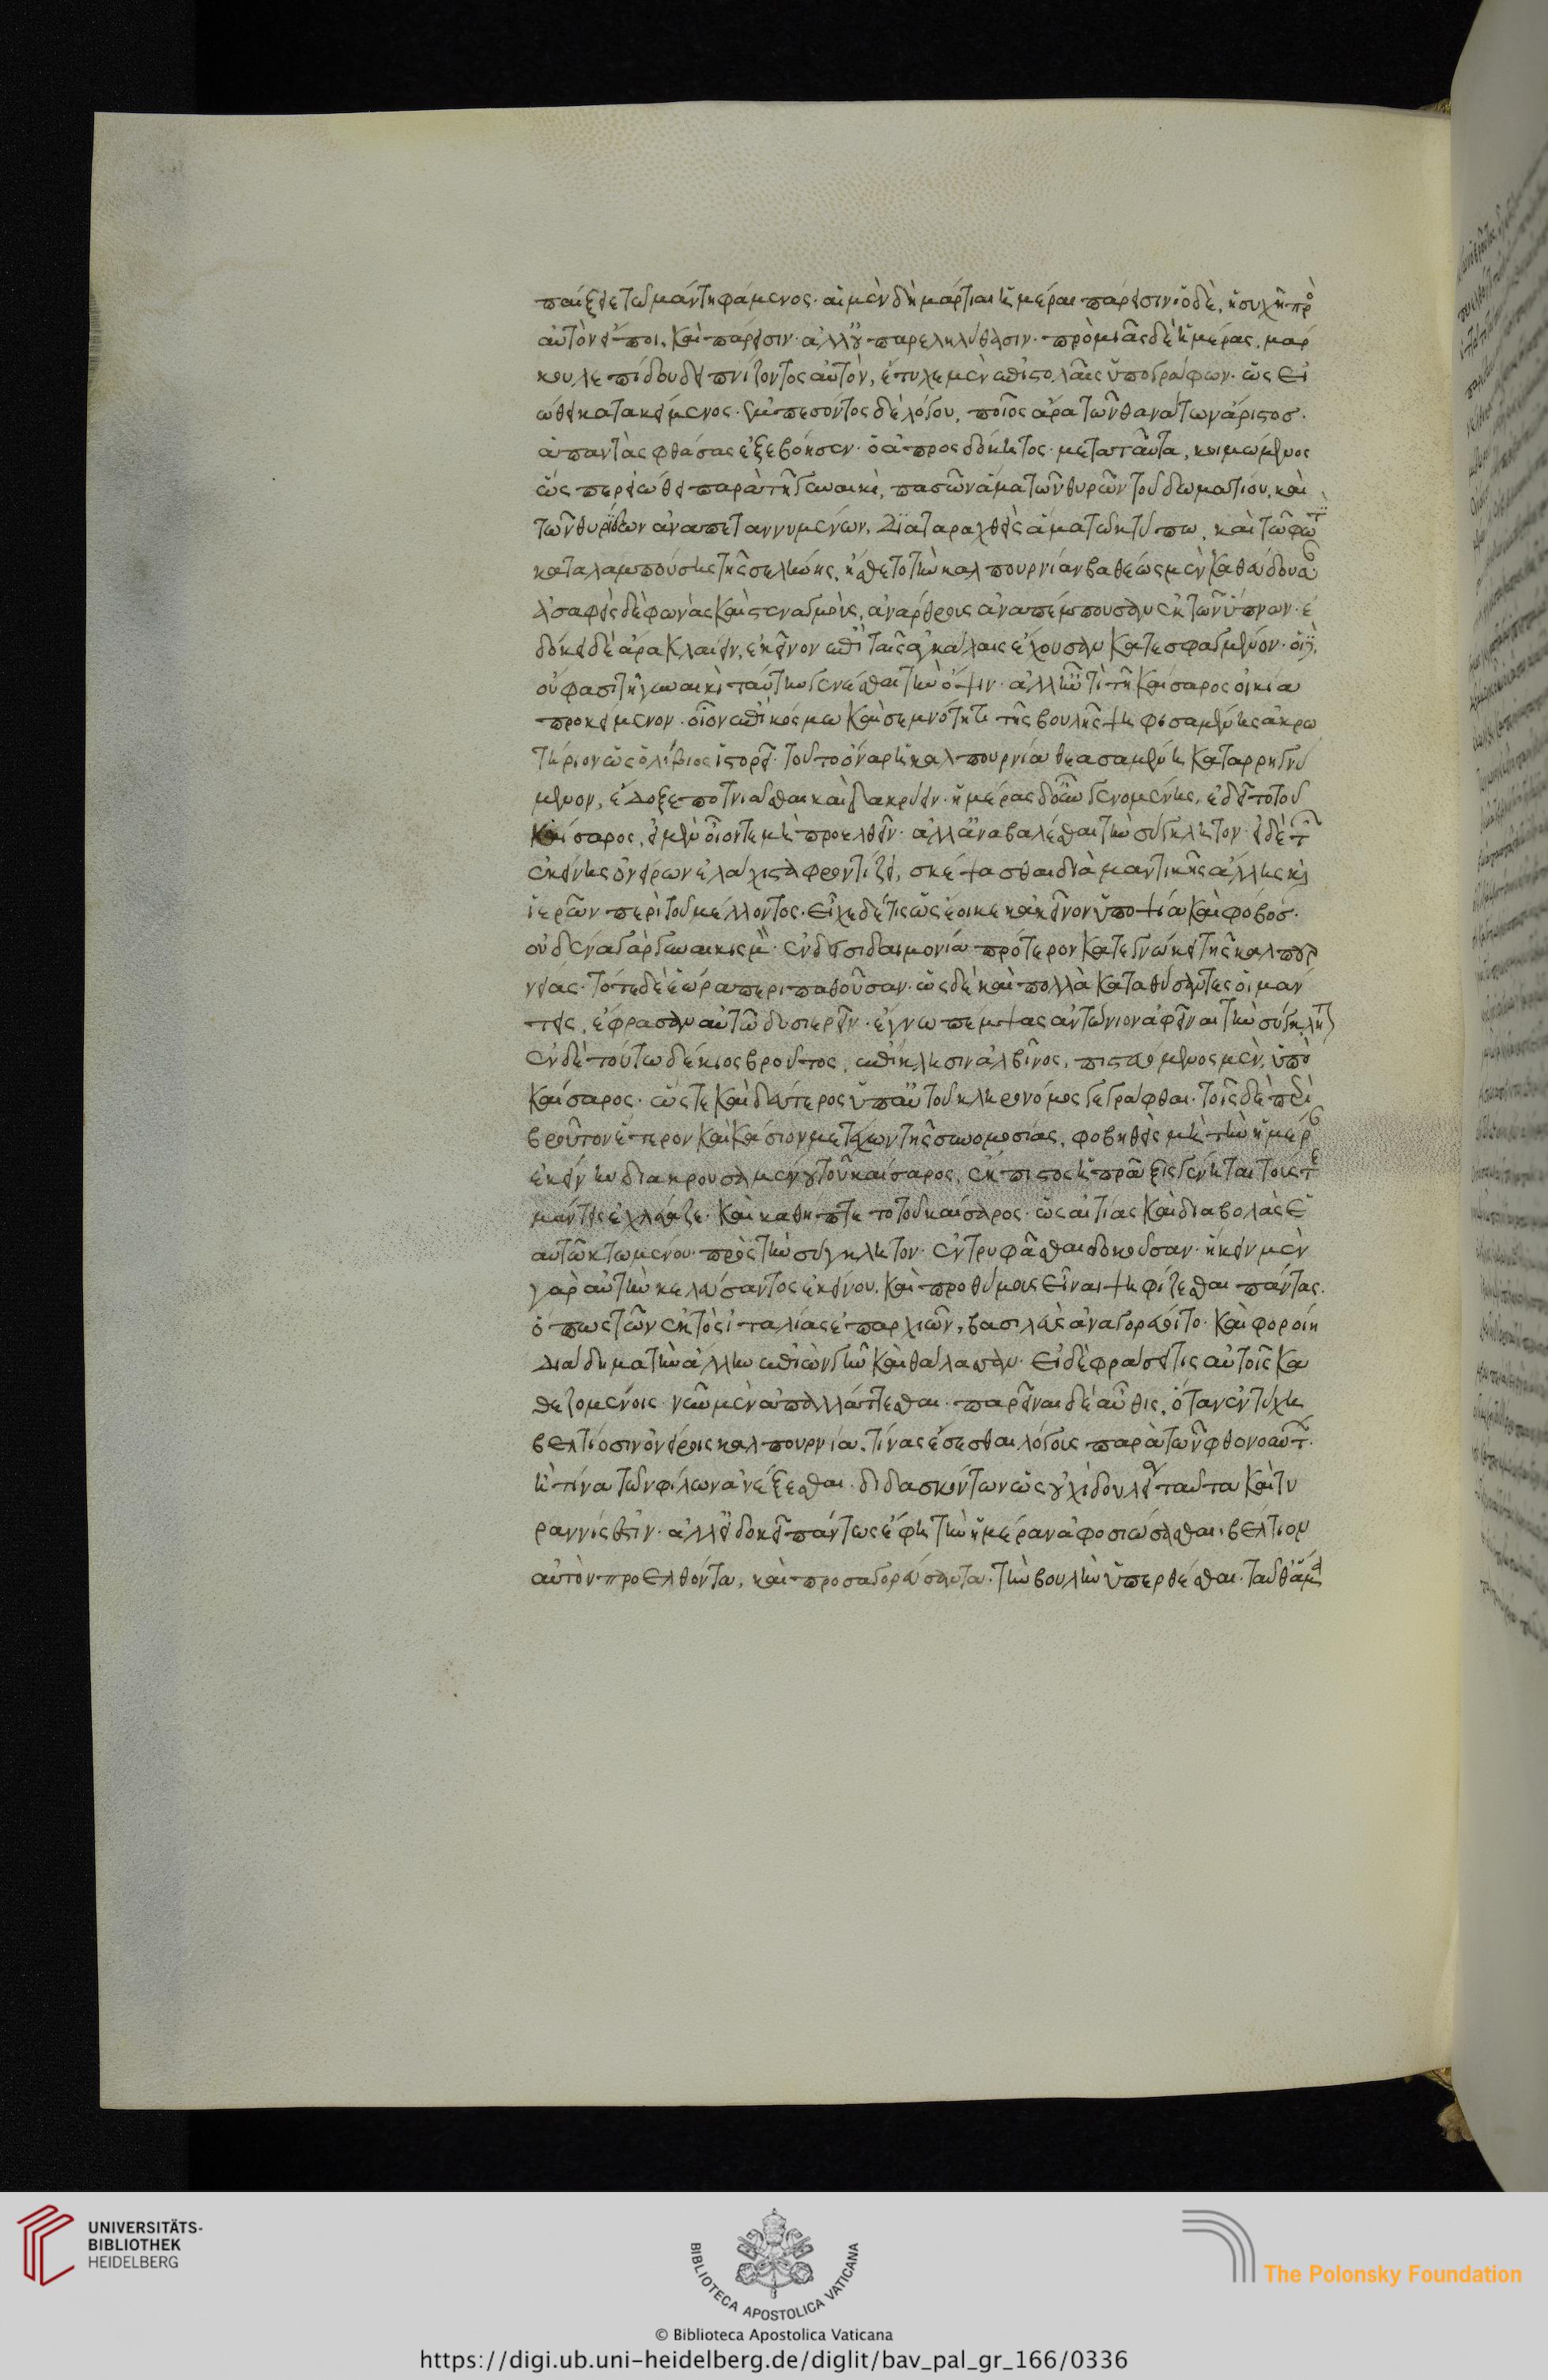 παίξειε τῶ μάντη φάμενος· αἱ μὲν δὴ μάρτιαι ἡμέραι πάρεισιν· ὁ δὲ, ἡσυχῆ πρὸ
αὐτὸν εἴποι, καὶ πάρεισιν· ἀλλ' οὐ παρεληλύθασιν· πρὸ μιᾶς δὲ ἡμέρας, μάρ
κου λεπίδου δειπνίζοντος αὐτὸν, ἔτυχε μὲν ἐπιστολαῖς ὑπογράφων· ὡς εἰ
ώθει κατακείμενος· ἐμπεσόντος δὲ λόγου, ποῖος ἄρα τῶν θανάτων ἄριστος·
ἅπαντας φθάσας ἐξεβόησεν· ὁ ἀπροσδόκητος· μετὰ ταῦτα, κοιμώμενος
ὥς περ εἰώθει παρὰ τῇ γυναικὶ, πασῶν ἅμα τῶν θυρῶν τοῦ δωματίου, καὶ
τῶν θυρίδων ἀναπεταννυμένων, διαταραχθεὶς ἅμα τῶ κτύπω, καὶ τῶ φωτὶ
καταλαμπούσης τῆς σελήνης, ἤσθετο τὴν καλπουρνίαν βαθέως μὲν καθεύδουσαν
ἀσαφεῖς δὲ φωνὰς καὶ στεναγμοὺς, ἀνάρθρους ἀναπέμπουσαν ἐκ τῶν ὕπνων· ἐ
δόκει δὲ ἄρα κλαίειν, ἐκεῖνον ἐπὶ ταῖς ἀγκάλαις ἔχουσαν κατεσφαγμένον· οἱ δὲ,
οὔ φασι τῇ γυναικὶ ταύτην γενέσθαι τὴν ὄψιν· ἀλλ' ἦν τι τῇ καίσαρος οἰκία
προκείμενον· οἷον ἐπὶ κόσμω καὶ σεμνότητι τῆς βουλῆς ψηφισαμένης ἀκρω
τήριον ὡς ὁ λίβιος ἱστορεῖ· τοῦτο ὄναρ ἡ καλπουρνία θεασαμένη καταρρηγνύ
μενον, ἔδοξε ποτνιᾶσθαι καὶ δακρύειν· ἡμέρας δ' οὖν γενομένης, ἐδεῖτο τοῦ
καίσαρος, εἰ μὲν οἷόν τε μὴ προελθεῖν· ἀλλ' ἀναβαλέσθαι τὴν σύγκλητον· εἰ δὲ τῶν
ἐκείνης ὀνείρων ἐλάχιστα φροντίζει, σκέψασθαι διὰ μαντικῆς ἄλλης καὶ
ἱερῶν περὶ τοῦ μέλλοντος· εἶχε δέ τις ὡς ἔοικε κἀκεῖνον ὑποψία καὶ φόβος·
οὐδένα γὰρ γυναικισμὸν· ἐν δεισιδαιμονία πρότερον κατεγνώκει τῆς καλπουρ
νίας· τότε δὲ ἑώρα περιπαθοῦσαν· ὡς δὲ καὶ πολλὰ καταθύσαντες οἱ μάν
τεις, ἔφρασαν αὐτῶ δυσιερεῖν· ἔγνω πέμψας ἀντώνιον ἀφεῖναι τὴν σύγκλητον
ἐν δὲ τούτω δέκιος βροῦτος, ἐπίκλησιν ἀλβῖνος, πιστευόμενος μὲν, ὑπὸ
καίσαρος· ὥστε καὶ δεύτερος ὑπ' αὐτοῦ κληρονόμος γεγράφθαι· τοῖς δὲ περὶ
βροῦτον ἕτερον καὶ κάσιον μετέχων τῆς συνομοσίας, φοβηθεὶς μὴ τὴν ἡμέραν
ἐκείνην διακρουσαμένου τοῦ καίσαρος, ἔκπυστος ἡ πρᾶξις γένηται τούς τε
μάντεις ἐχλεύαζε· καὶ καθήπτετο τοῦ καίσαρος· ὡς αἰτίας καὶ διαβολὰς ἑ
αυτῶ κτωμένου· πρὸς τὴν σύγκλητον· ἐντρυφᾶσθαι δοκοῦσαν· ἥκειν μὲν
γὰρ αὐτὴν κελεύσαντος ἐκείνου, καὶ προθύμους εἶναι ψηφίζεσθαι πάντας·
ὅπως τῶν ἐκτὸς ἰταλίας ἐπαρχιῶν, βασιλεὺς ἀναγορεύοιτο· καὶ φοροίη
διάδημα τὴν ἄλλην ἐπιὼν γῆν καὶ θάλασσαν· εἰ δὲ φράσει τις αὐτοῖς κα
θεζομένοις νῦν μὲν ἀπαλλάττεσθαι· παρεῖναι δὲ αὖθις, ὅταν ἐντύχη
βελτίοσιν ὀνείροις καλπουρνία, τίνας ἔσεσθαι λόγους παρὰ τῶν φθονούντων·
ἢ τίνα τῶν φίλων ἀνέξεσθαι· διδασκόντων ὡς οὐχὶ δουλεία ταῦτα καὶ τυ
ραννίς ἐστιν· ἀλλ' εἰ δοκεῖ πάντως ἔφη τὴν ἡμέραν ἀφοσιώσασθαι, βέλτιον
αὐτὸν προελθόντα, καὶ προσαγορεύσαντα· τὴν βουλὴν ὑπερθέσθαι· ταῦθ' ἅμα
UNIVERSITÄTS-
BIBLIOTHEK
HEIDELBERG
BIBLIOTECA APOSTOLICA VATICANA
The Polonsky Foundation
© Biblioteca Apostolica Vaticana
https://digi.ub.uni-heidelberg.de/diglit/bav_pal_gr_166/0336